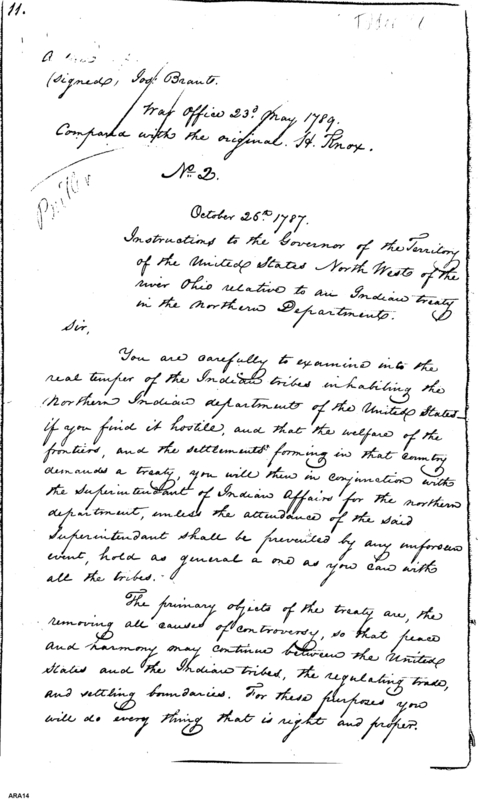 11.
A
(signed) Jos. Brant.
War Office 23d. May 1789.
Compared with the original. H. Knox.
No. 2.
October 26th 1787.
Instructions to the Governor of the Territory
of the United States North West of the
river Ohio relative to an Indian treaty
in the northern Department.
Sir,
You are carefully to examine into the
real temper of the Indian tribes inhabiting the
Northern Indian department of the United States—
if you find it hostile, and that the welfare of the
frontiers, and the settlements forming in that country
demands a treaty, you will then in conjunction with
the Superintendant of Indian Affairs for the northern
department, unless the attendance of the said
Superintendant shall be prevented by any unforseen
event, hold as general a one as you can with
all the tribes.
The primary objects of the treaty are, the
removing all causes of controversy, so that peace
and harmony may continue between the United
States and the Indian tribes, the regulating trade,
and settling boundaries. For these purposes you
will do every thing that is right and proper.
ARA14